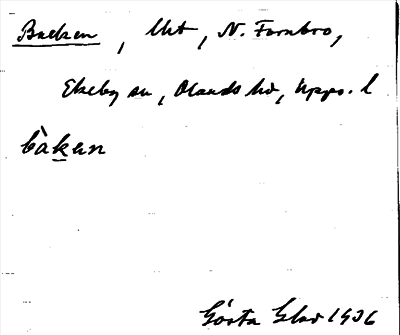 Backen, Uht, N. Fornbro,
Ekeby sn, Olands hd, Upps. l
bàkan
Gösta Glad 1936